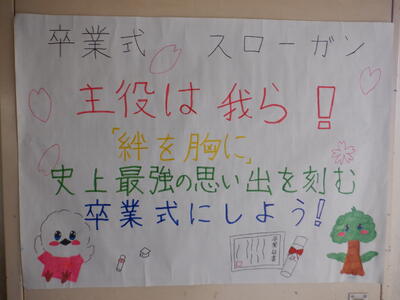 卒業式　スローガン
主役は我ら！
「絆を胸に」
史上最強の思い出を刻む
卒業式にしよう！
卒業証書